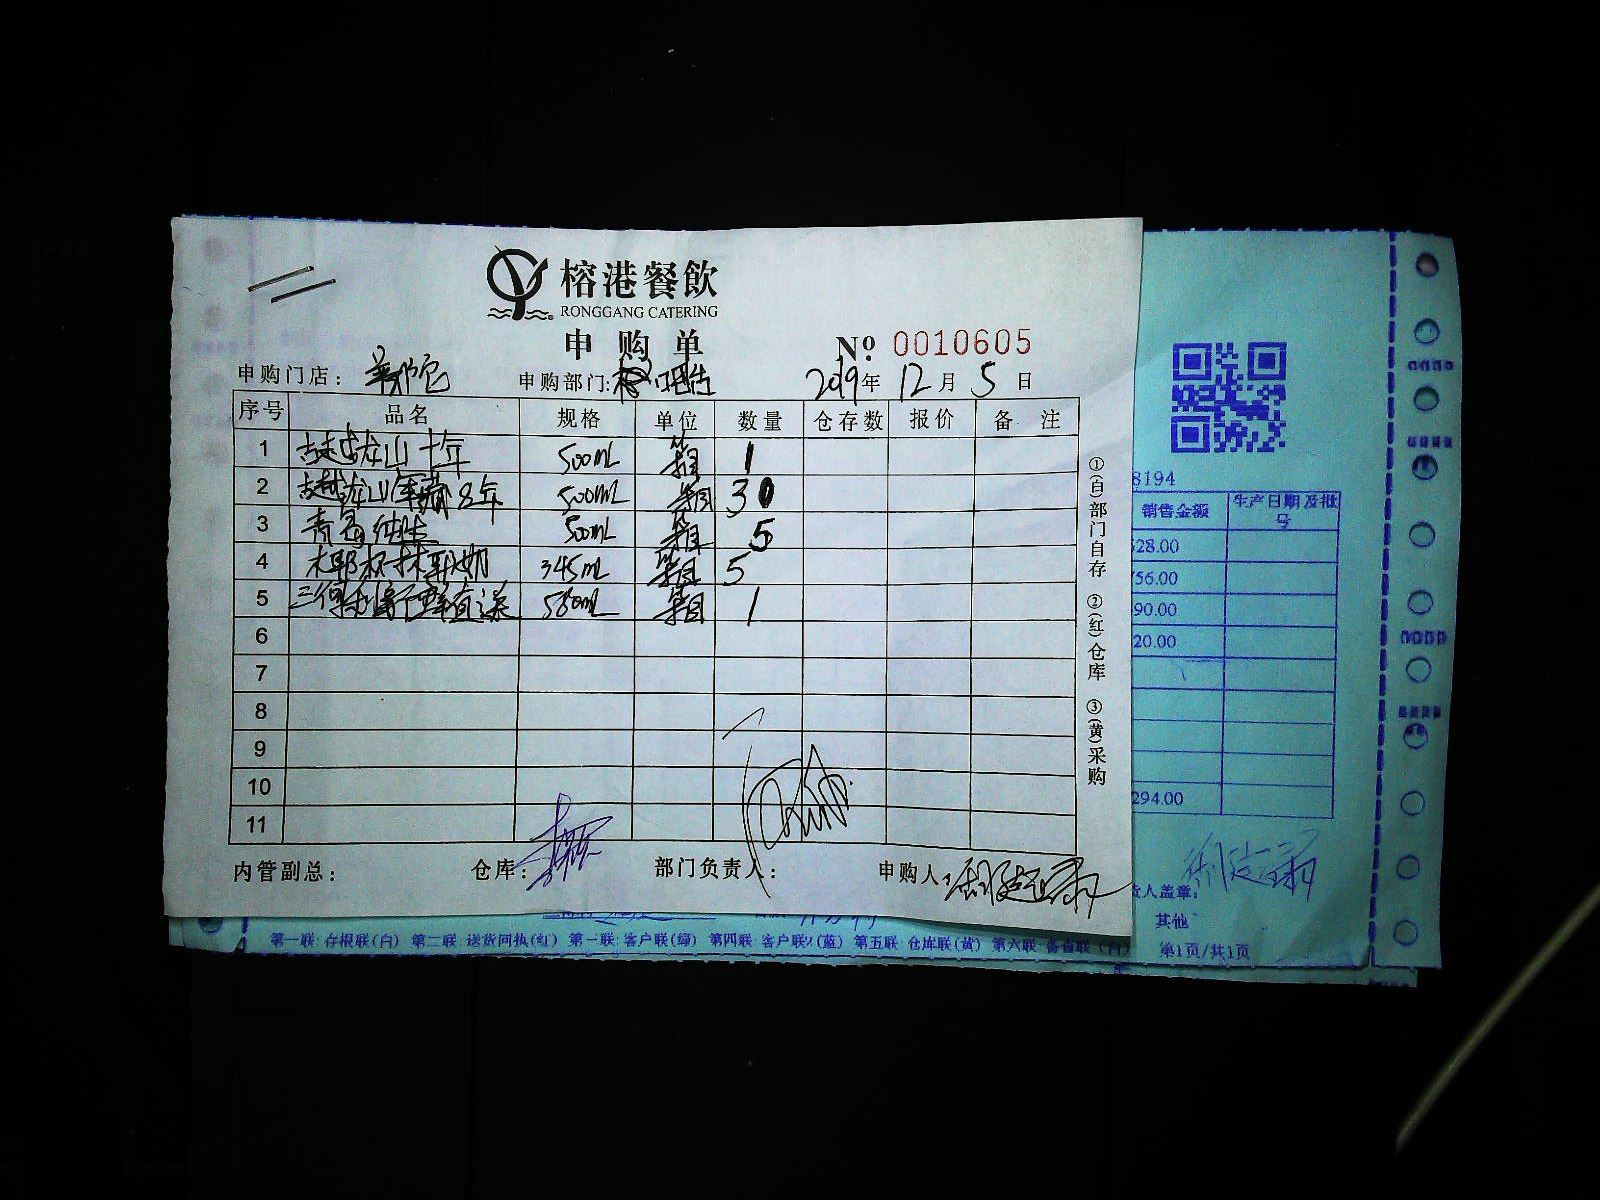 榕港餐飲
RONGGANG CATERING
申购单
№ 0010605
申购门店：
申购部门： 2019年 12月 5日
序号 品名 规格 单位 数量 仓存数 报价 备注
1 古越龙山十年 500mL 箱 1
2 古越龙山库藏8年 500mL 箱 30
3 青岛纯生 500mL 箱 5
4 345mL 箱 5
5 580mL 箱 1
6
7
8
9
10
11
内管副总： 仓库： 部门负责人： 申购人：
①(白)部门自存 ②(红)仓库 ③(黄)采购
8194
销售金额 生产日期及批号
28.00
756.00
90.00
20.00
294.00
货人盖章：
其他
第一联:存根联(白) 第二联:送货回执(红) 第一联:客户联(绿) 第四联:客户联2(蓝) 第五联:仓库联(黄) 第六联:备查联(白) 第1页/共1页